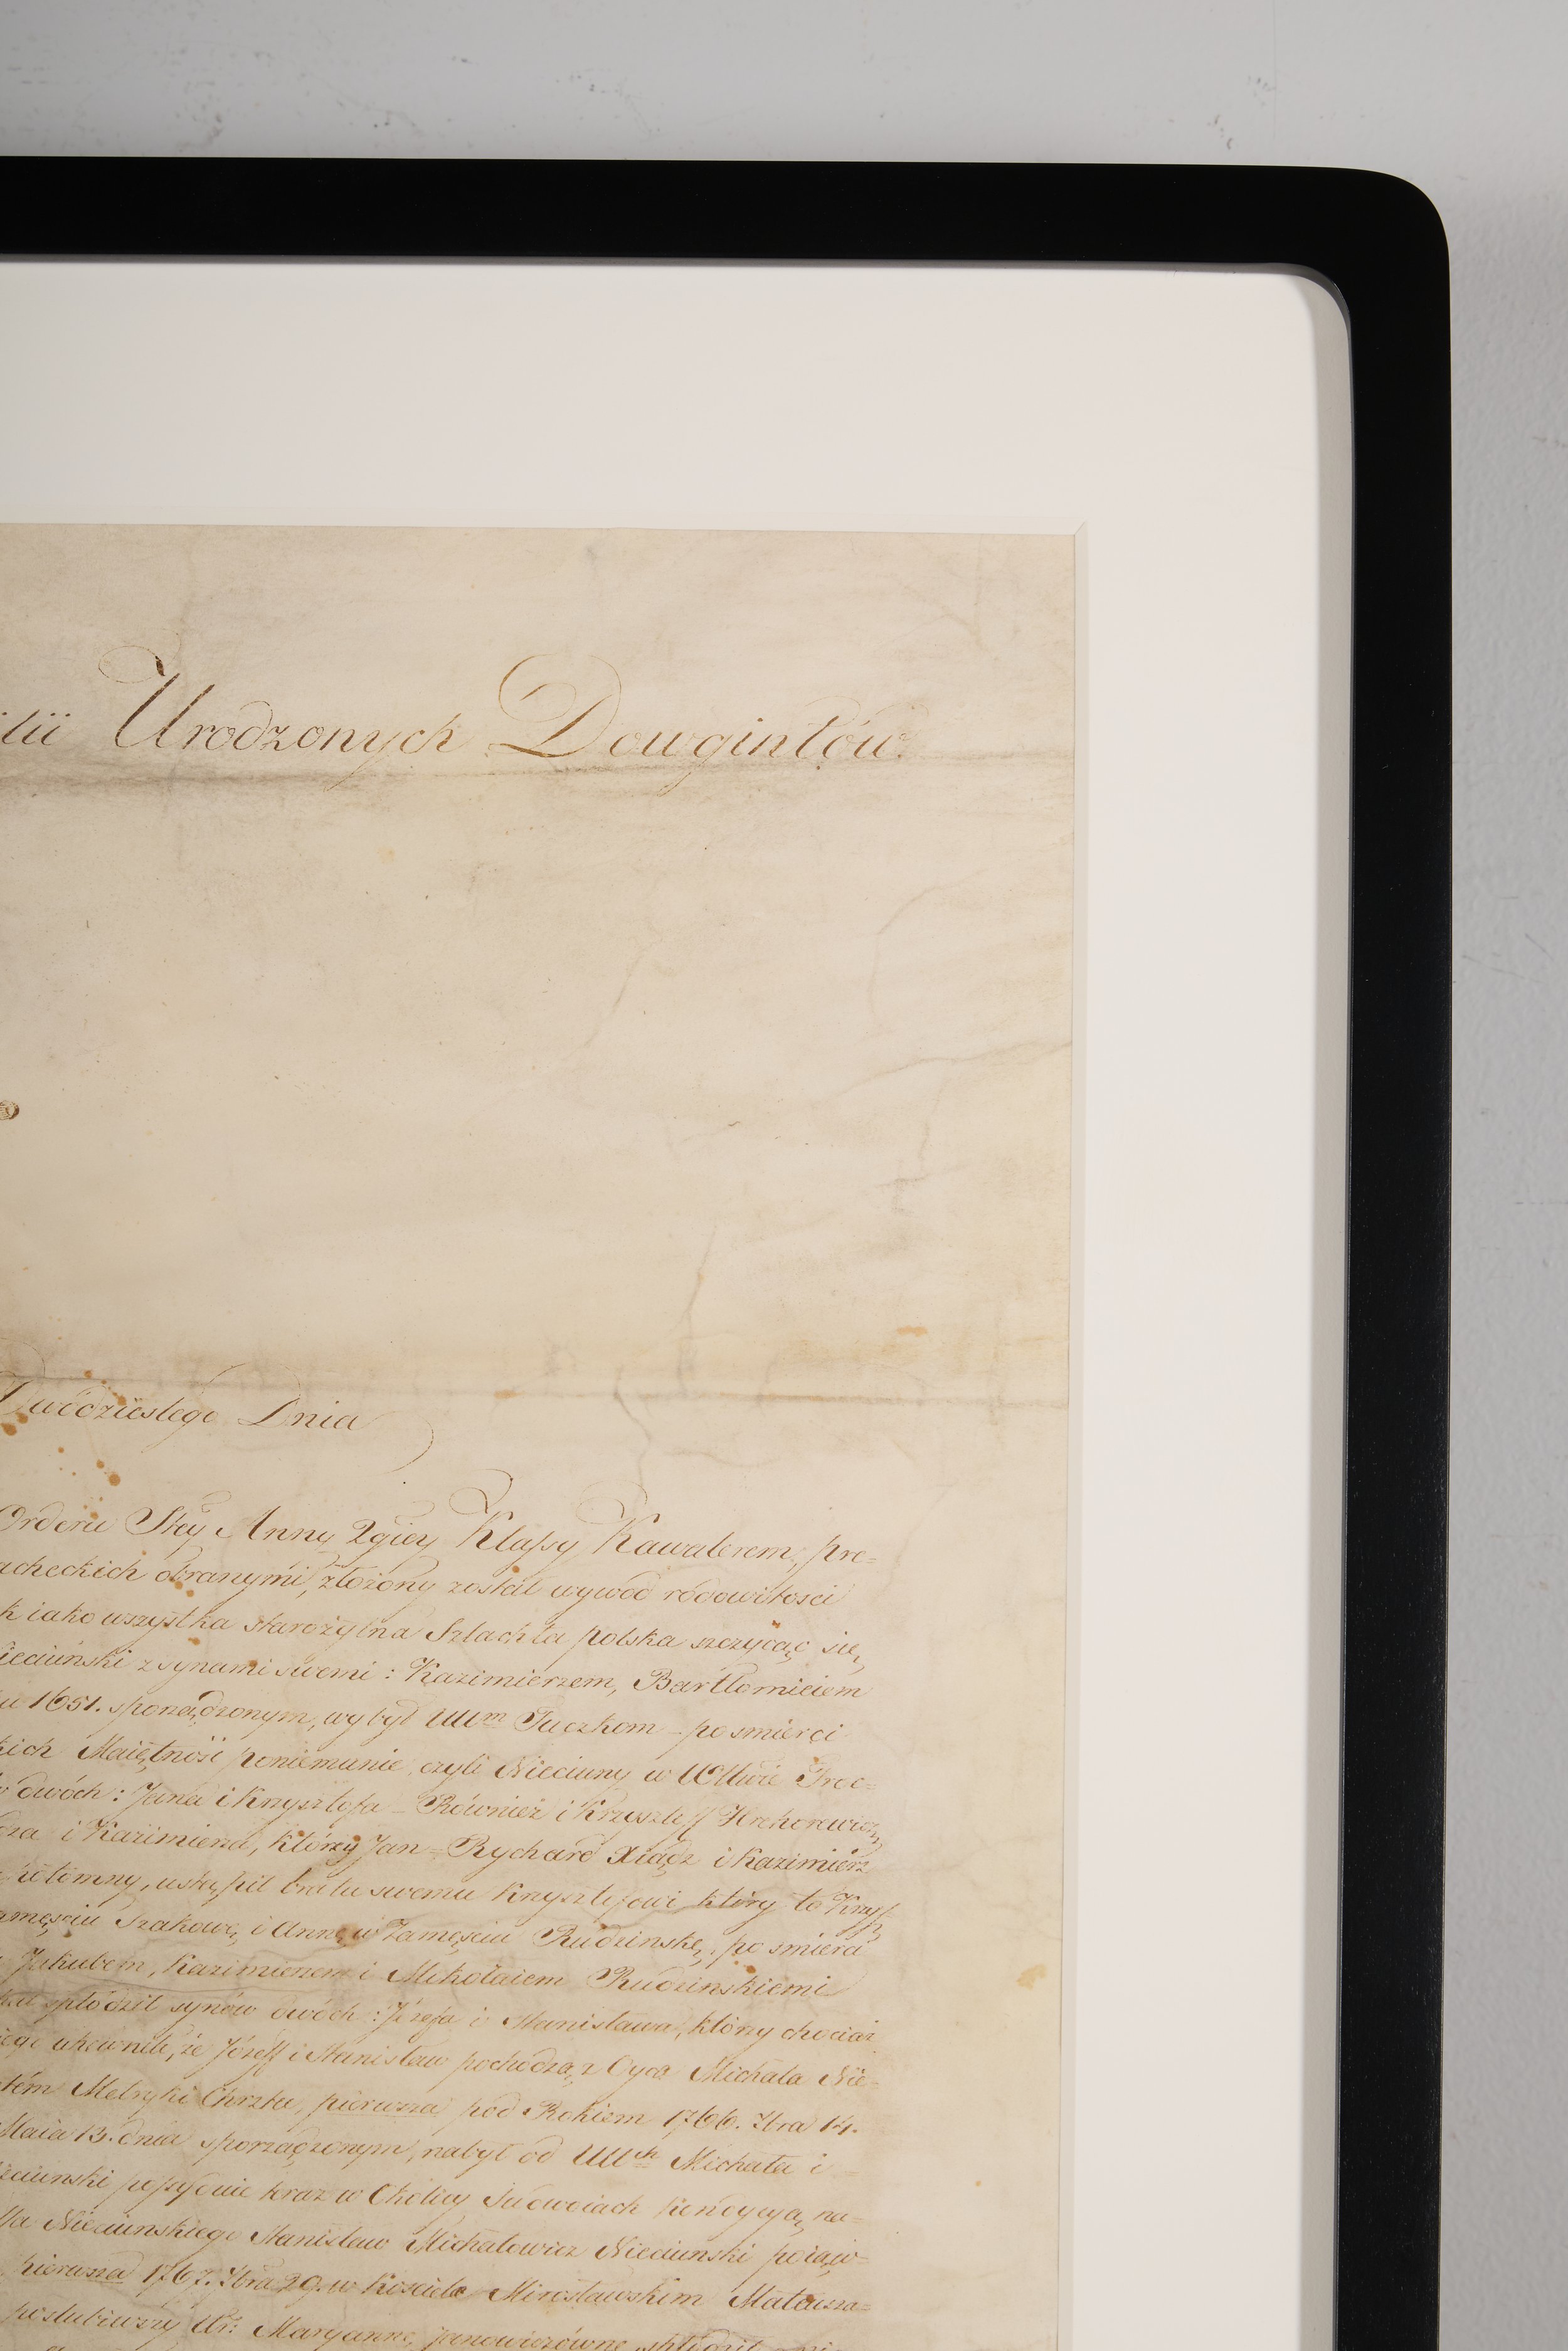 ilii Urodzonych Dowgintów.
Dwódziestego Dnia
Orderu Stey Anny 2giey Klassy Kawalerem, pre=
acheckich obranymi, złożony został wywód rodowitości
k iako wszystka starożytna Szlachta polska szczycąc się,
ieciuński z synami swemi: Kazimierzem, Bartłomieiem
u 1651. sporządzonym, wybył UUm Juczkom – po smierci
kich Maiętnosi poniemunie, czyli Nieciuny w Wttwie Troc=
dwóch: Jana i Krysztofa – Również i Krzysztoff Hrehorewicz,
i Kazimierza, którzy Jan = Rychard Xiądz i Kazimierz
ustąpił bratu swemu Krysztofowi który to Krysz
amęściu Szakową, i Annę w Zamęściu Rudzinską, po smierci
Jakubem, Kazimierzem i Mikołaiem Rudzinskiemi
spłodził synów dwóch: Józefa i Stanisława, którzy chociaż
że Józeff i Stanisław pochodzą z Oyca Michała Nie=
Metryki Chrztu, pierwsza pod Rokiem 1766. Xbra 14.
Maia 13. dnia sporządzonym, nabył od UUch Michała i =
ieciunski possydnie toraz w Okolicy Sudwoiach kondycyą, na=
Nieciunskiego Stanisław Michałowicz Nieciunski poiąw=
pierwsza 1767. Xbra 29. w Kosciele Mirosławskim Mateusza=
poslubiwszy Ur: Maryannę Janowiczównę, spłodził